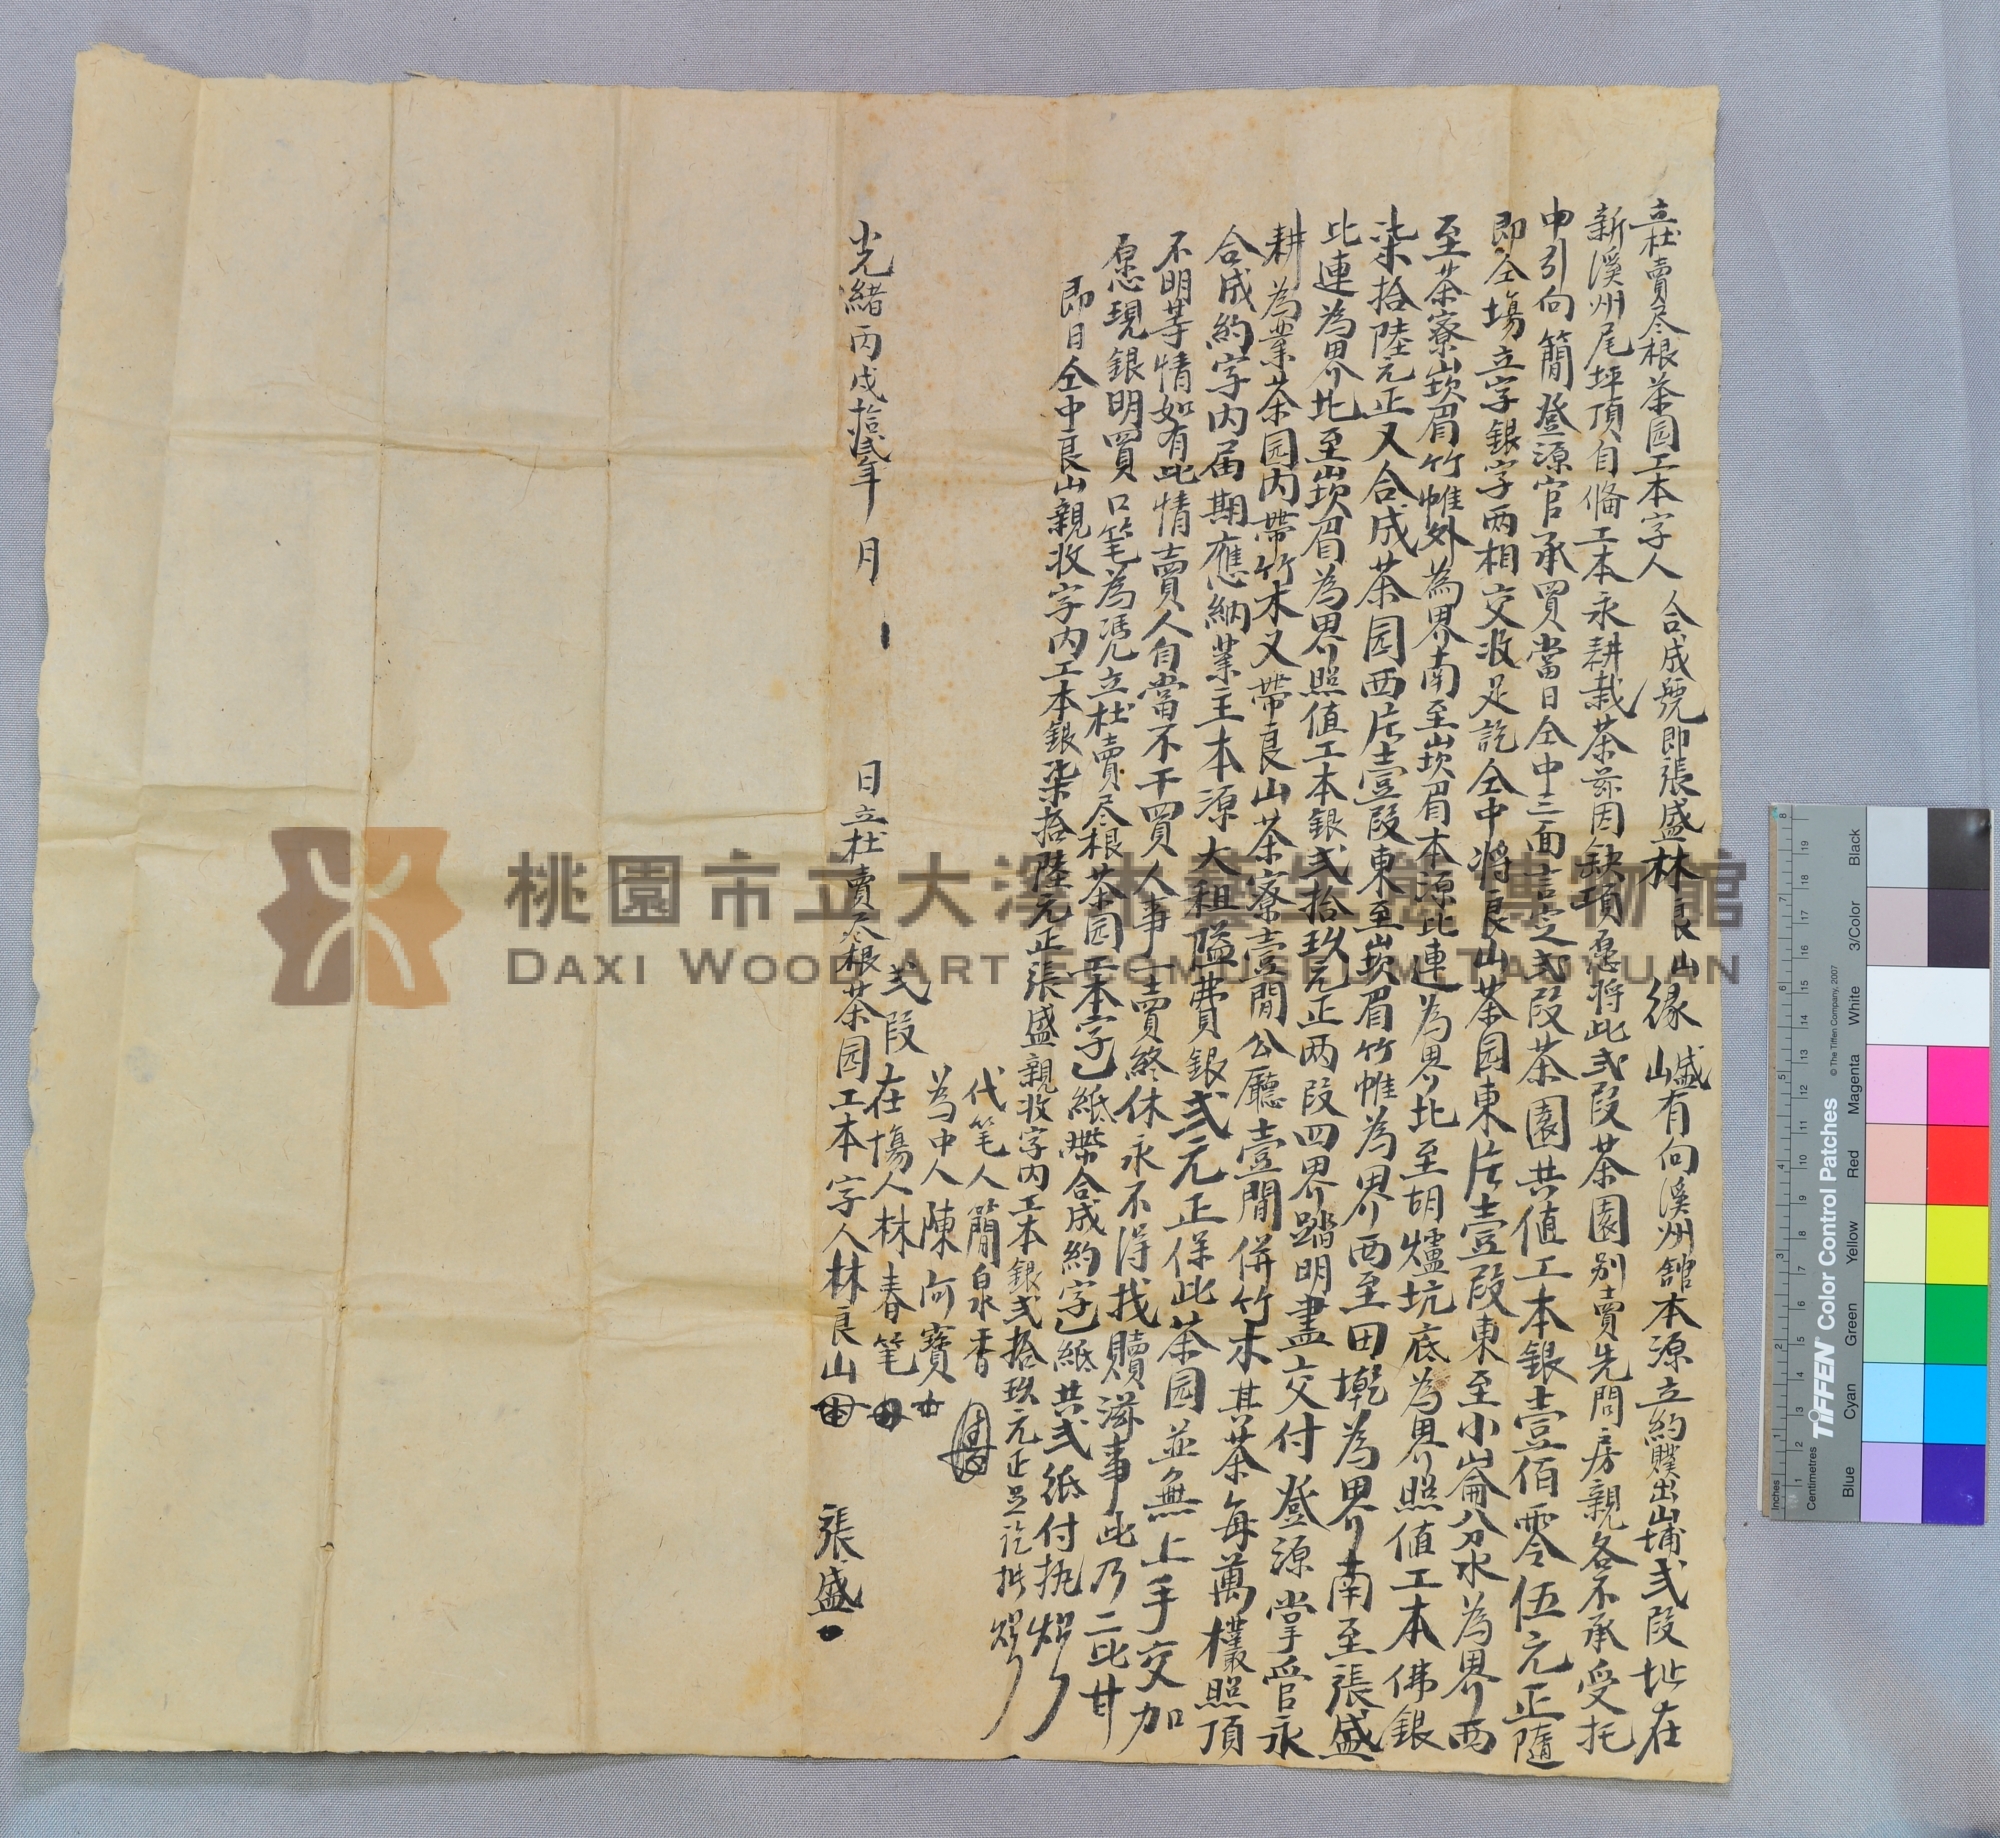 立杜賣尽根茶园工本字人合成號即張盛林良山緣盛有向溪州舘本源立約贌出山埔弍段址在
新溪州尾坪頂自俻工本永耕栽茶茲因缺項愿將此弍段茶園别賣先問房親各不承受托
中引向簡登源官承買當日仝中三面言定弍段茶園共值工本銀壹佰零伍元正隨
即仝塲立字銀字两相交收足訖仝中將良山茶园東片壹段東至小崙分水為界西
至茶寮崁眉竹帷外為界南至崁眉本源比連為界北至胡爐坑底為界照值工本佛銀
柒拾陸元正又合成茶园西片壹段東至崁眉竹帷為界西至田墘為界南至張盛
比連為界北至崁眉為界照值工本銀弍拾玖元正两段四界踏明盡交付登源掌管永
耕為業茶园内帶竹木又帶良山茶寮壹間公廳壹間併竹木其茶每萬欉照頂
合成約字内届期應納業主本源大租隘費銀弍元正保此茶园並無上手交加
不明等情如有此情賣人自當不干買人事一賣終休永不得找贖滋事此乃二比甘
愿現銀明買口筆為憑立杜賣尽根茶园工本字乙紙帶合成約字乙紙共弍紙付执炤
即日仝中良山親收字内工本銀柒拾陸元正張盛親收字内工本銀弍拾玖元正足訖批炤
代笔人簡泉香
為中人陳阿寶
弍段在塲人林春笔
光緒丙戌拾弍年 月 日立杜賣尽根茶园工本字人林良山
張盛
桃園市立大溪木藝生態博物館
DAXI WOOD ART ECOMUSEUM, TAOYUAN
TIFFEN Color Control Patches
© The Tiffen Company, 2007
Inches
Centimetres
Blue Cyan Green Yellow Red Magenta White 3/Color Black